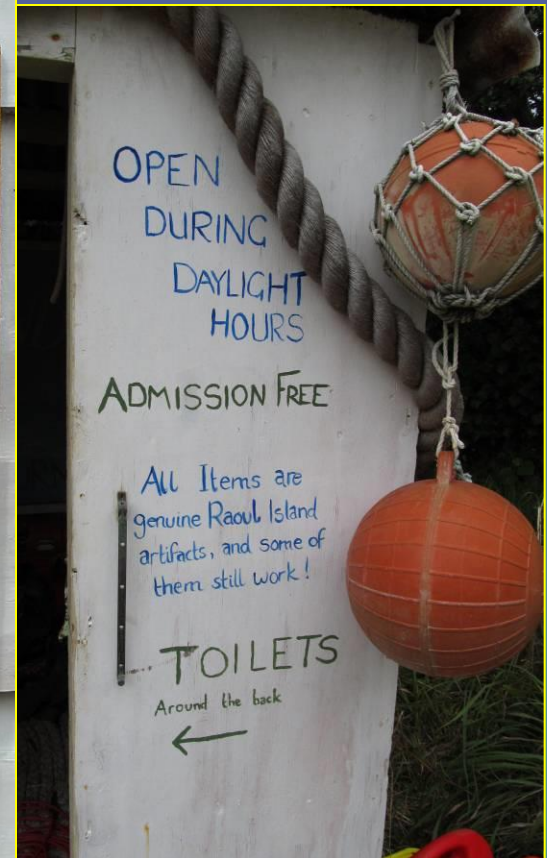 OPEN
DURING
DAYLIGHT
HOURS
ADMISSION FREE
All Items are
genuine Raoul Island
artifacts, and some of
them still work!
TOILETS
Around the back